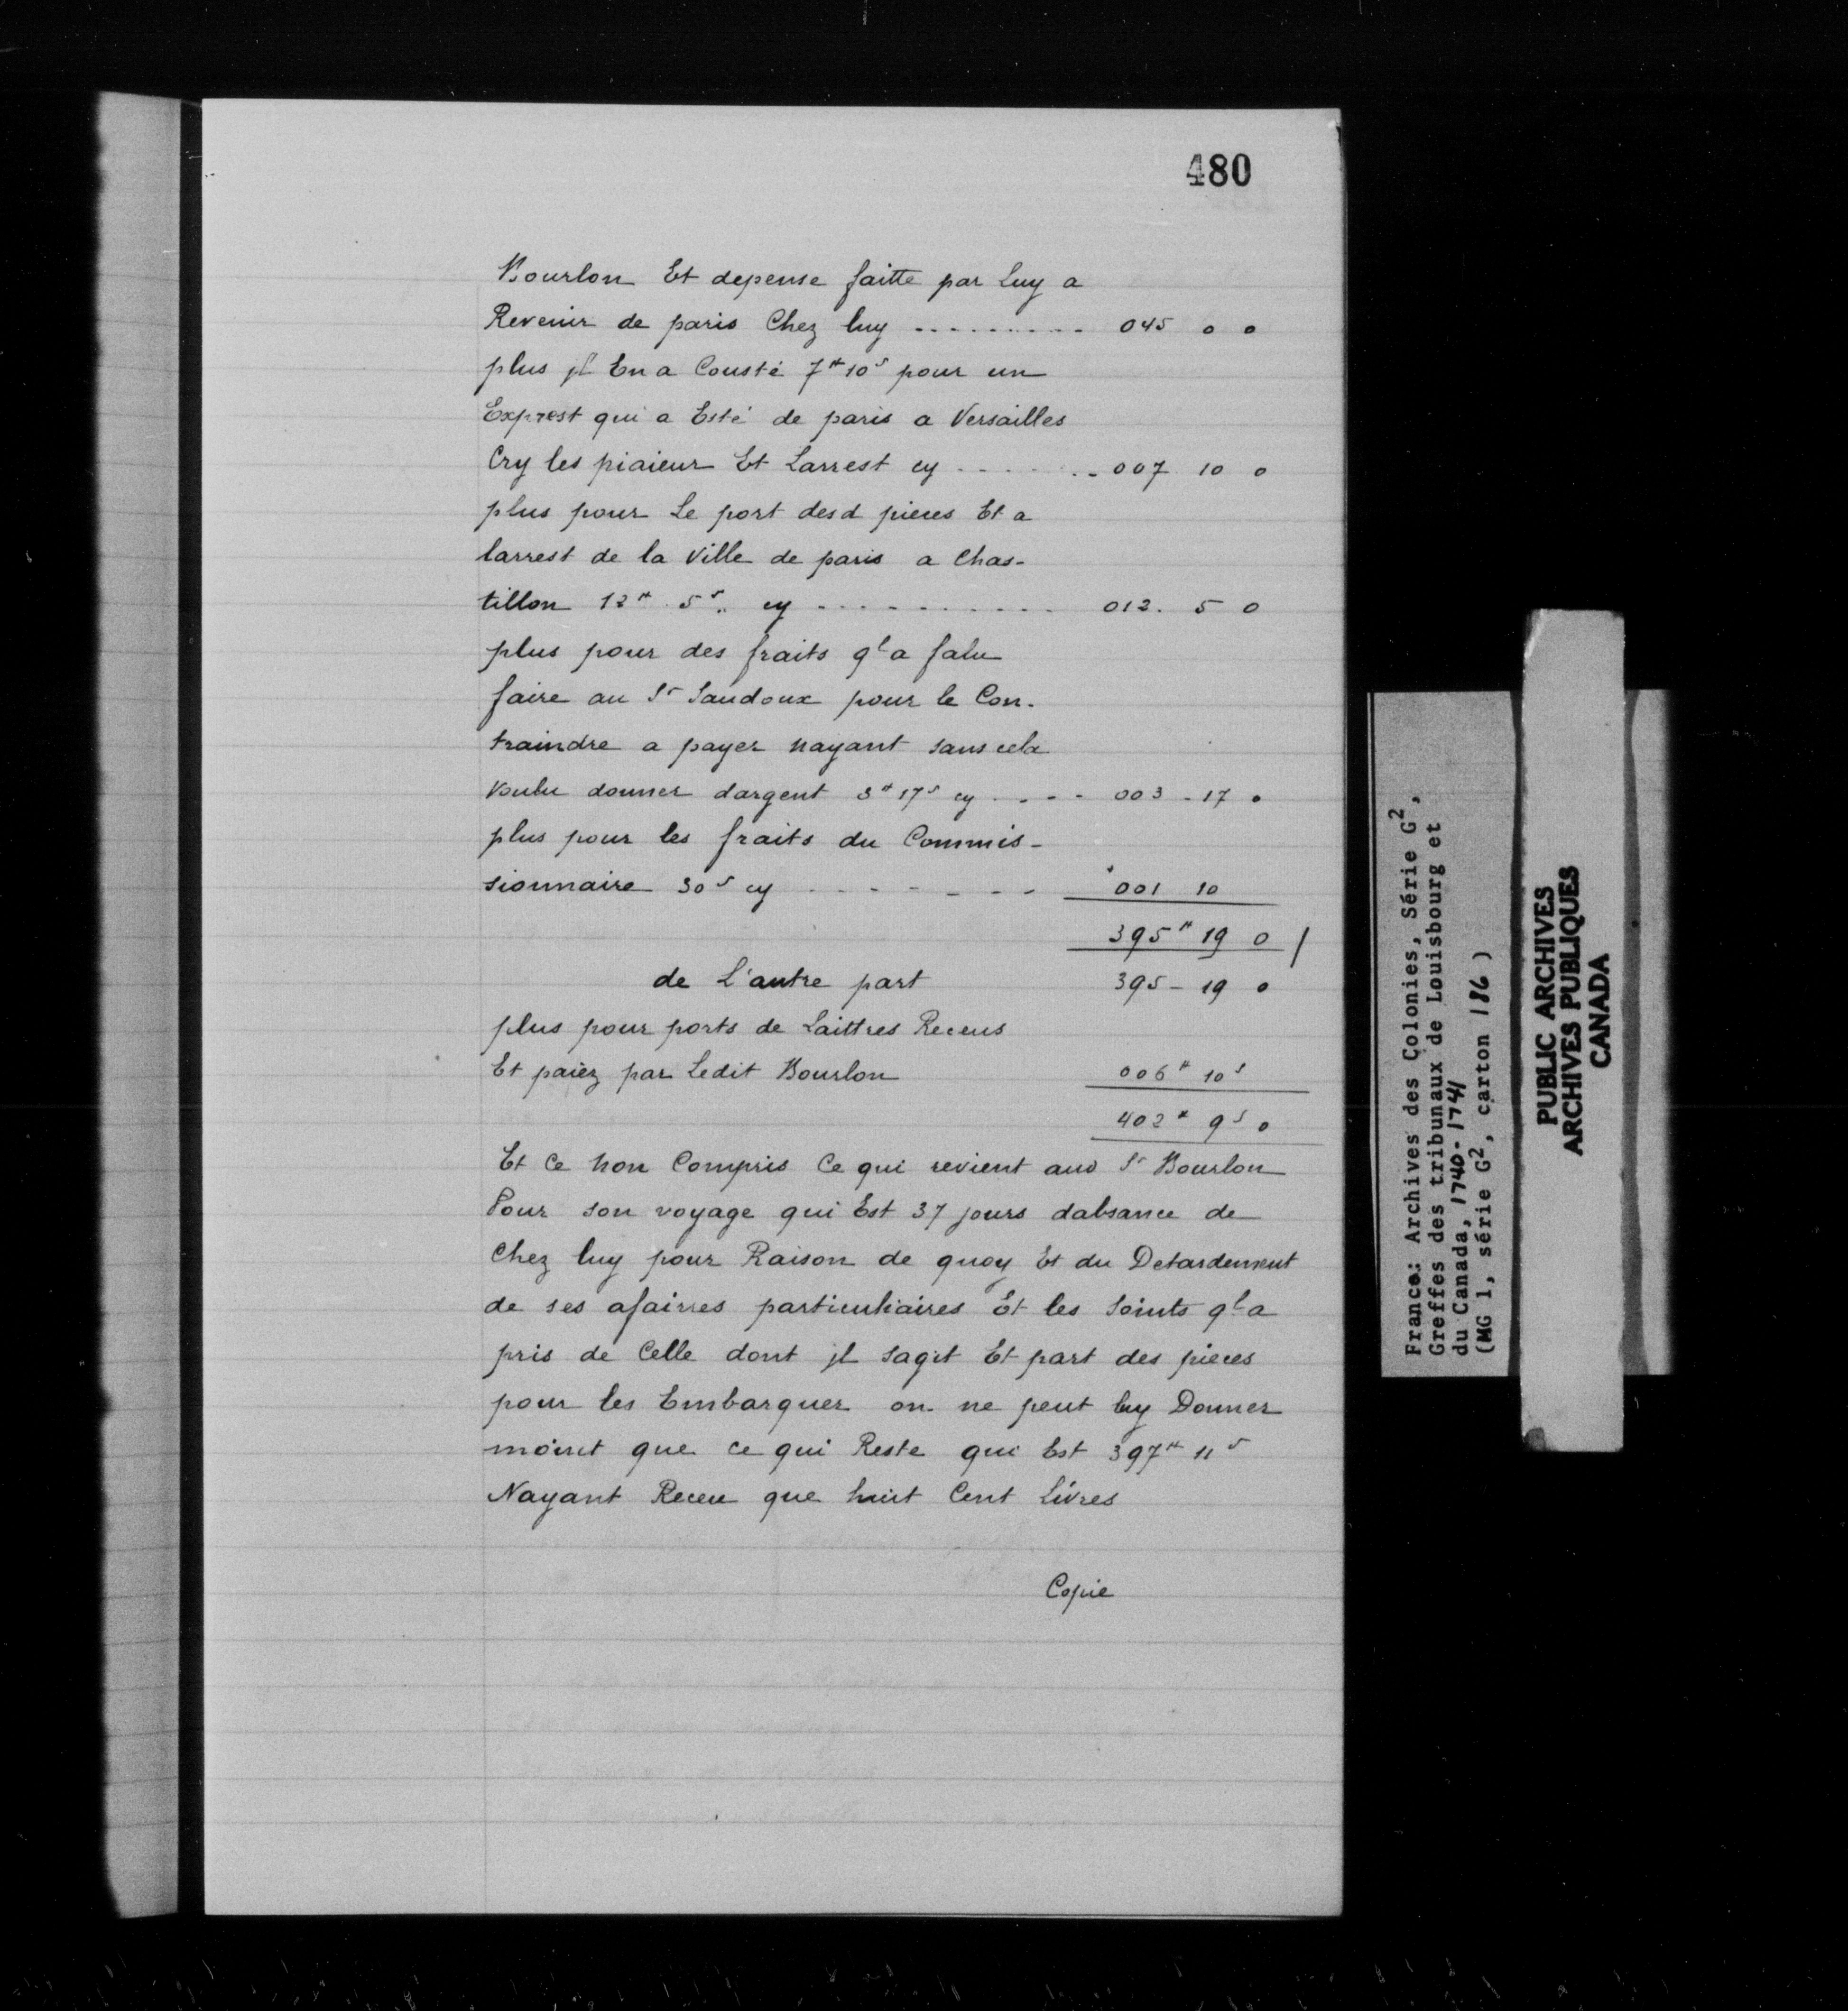 480
Bourlon Et depense faitte par Luy a
Revenir de paris Chez luy ......... 045 0 0
plus jl En a Cousté 7# 10s pour un
Exprest qui a Esté de paris a Versailles
Cry les piaieur Et Larrest cy ........ 007 10 0
plus pour Le port desd pieces Et a
larrest de la Ville de paris a Chas-
tillon 12# 5s. cy .......... 012. 5 0
plus pour des fraits ql a falu
faire au Sr Saudoux pour le Con-
traindre a payer nayant sans cela
Voulu donner dargent 3# 17s cy .... 003 - 17 0
plus pour les fraits du Commis-
sionnaire 30s cy ....... 001 10
395# 19 0 /
de L'autre part 395 - 19 0
plus pour ports de Laittres Receus
Et paiéz par Ledit Bourlon 006# 10s
402# 9s 0
Et Ce non Compris Ce qui revient aud Sr Bourlon
Pour son voyage qui Est 37 jours dabsance de
Chez luy pour Raison de quoy Et du Detardement
de ses afairres particuliaires Et les Soints ql a
pris de Celle dont jl sagit Et part des pieces
pour les Embarquer on ne peut luy Donner
moint que ce qui Reste qui Est 397# 11s
Nayant Receu que huit Cent Livres
Copie
France: Archives des Colonies, Série G2,
Greffes des tribunaux de Louisbourg et
du Canada, 1740-1741
(MG 1, série G2, carton 186 )
PUBLIC ARCHIVES
ARCHIVES PUBLIQUES
CANADA